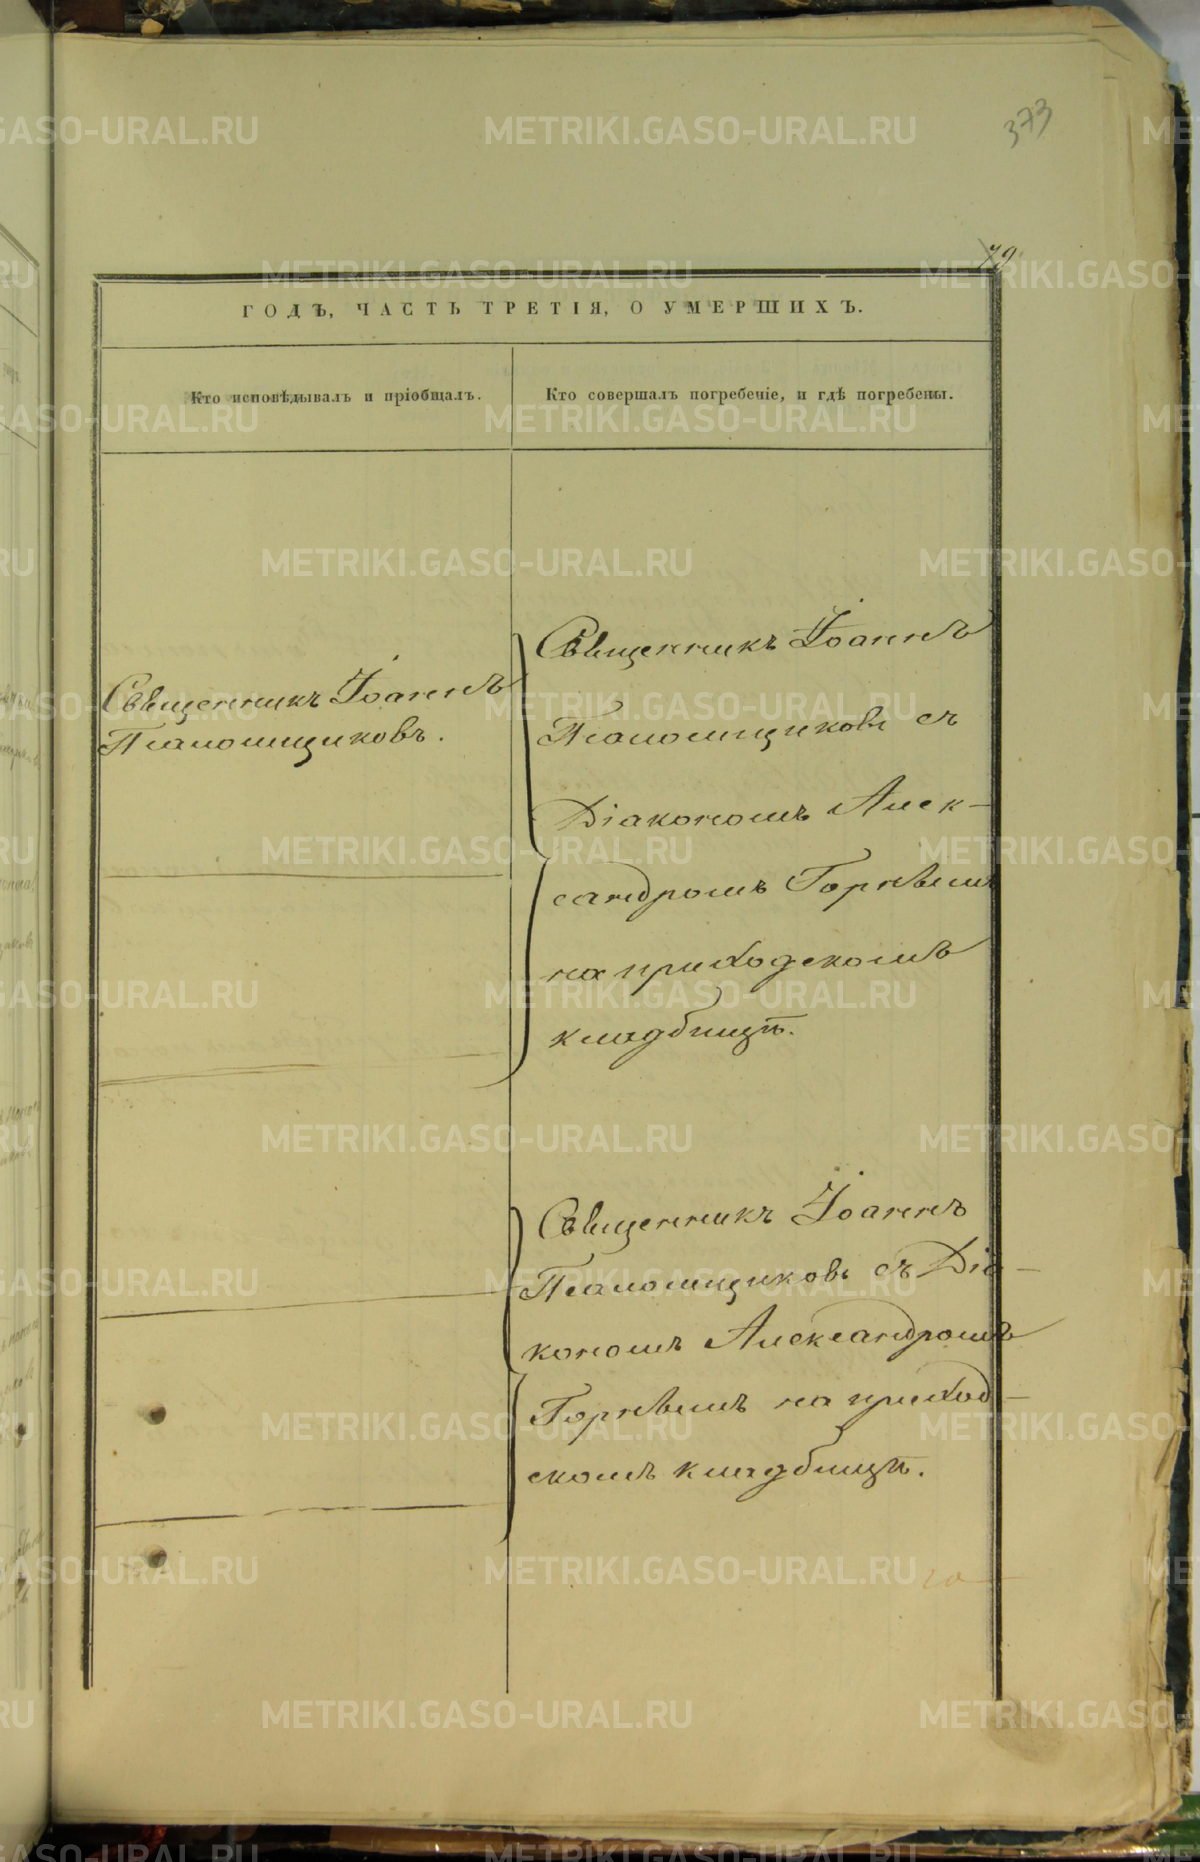 373
79
ГОДЪ, ЧАСТЬ ТРЕТІЯ, О УМЕРШИХЪ.
Кто исповѣдывалъ и пріобщалъ.
Кто совершалъ погребеніе, и гдѣ погребены.
Священникъ Іоаннъ
Псаломщиковъ.
Священникъ Іоаннъ
Псаломщиковъ съ
Діакономъ Алек-
сандромъ Горнѣымъ
на приходскомъ
кладбищѣ.
Священникъ Іоаннъ
Псаломщиковъ съ Діа-
кономъ Александромъ
Горнѣымъ на приход-
скомъ кладбищѣ.
METRIKI.GASO-URAL.RU